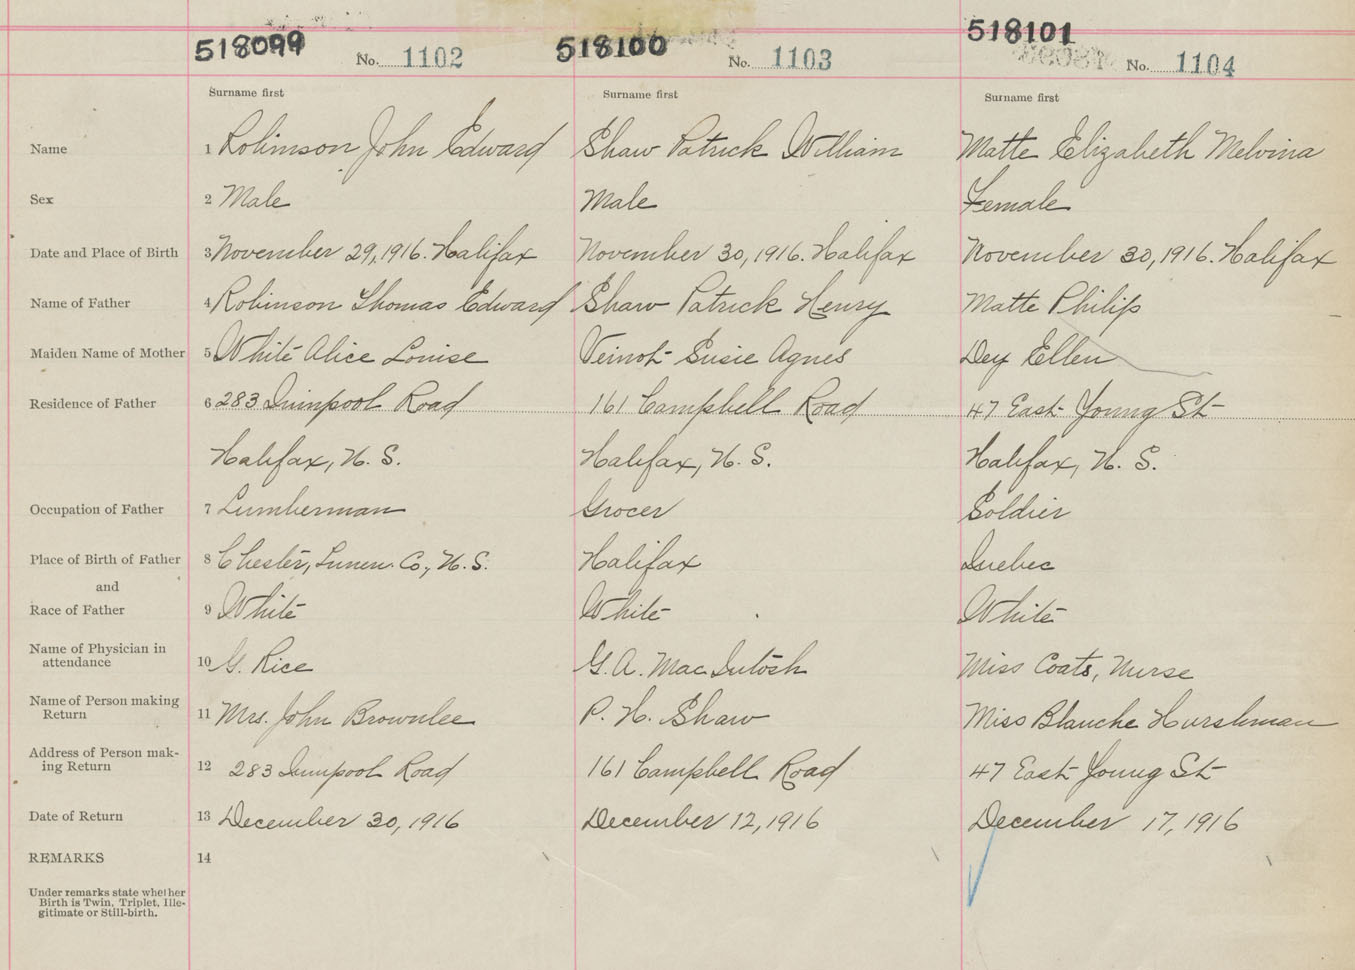 518099 518100 518101
No. 1102 No. 1103 No. 1104
Surname first Surname first Surname first
Name 1 Robinson John Edward Shaw Patrick William Matte Elizabeth Melvina
Sex 2 Male Male Female
Date and Place of Birth 3 November 29, 1916. Halifax November 30, 1916. Halifax November 30, 1916. Halifax
Name of Father 4 Robinson Thomas Edward Shaw Patrick Henry Matte Philip
Maiden Name of Mother 5 White Alice Louise Veinot Susie Agnes Dey Ellen
Residence of Father 6 283 Quinpool Road 161 Campbell Road 47 East Young St
Halifax, N. S. Halifax, N. S. Halifax, N. S.
Occupation of Father 7 Lumberman Grocer Soldier
Place of Birth of Father 8 Chester, Lunen. Co., N. S. Halifax Quebec
and
Race of Father 9 White White White
Name of Physician in
attendance 10 G. Rice G. A. MacIntosh Miss Coats, Nurse
Name of Person making
Return 11 Mrs. John Brownlee P. H. Shaw Miss Blanche Hurshman
Address of Person mak-
ing Return 12 283 Quinpool Road 161 Campbell Road 47 East Young St
Date of Return 13 December 30, 1916 December 12, 1916 December 17, 1916
REMARKS 14
Under remarks state whether
Birth is Twin, Triplet, Ille-
gitimate or Still-birth.